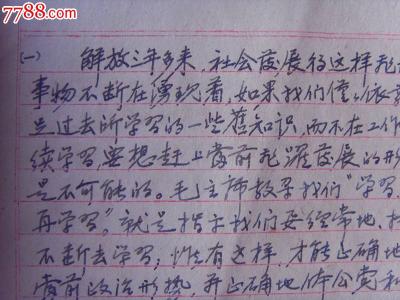 7788.com
(一) 解放三年多来，社会发展得这样
事物不断在湧现着，如果我们僅僅依
过去所学习的一些舊知识，而不在工作
续学习，要想赶上當前發展的形
是不可能的。毛主席教导我们"学习，
再学习"。就是指示我们要经常地，
不断去学习；惟有这样，才能正确地
當前政治形势，并正确地体会党和